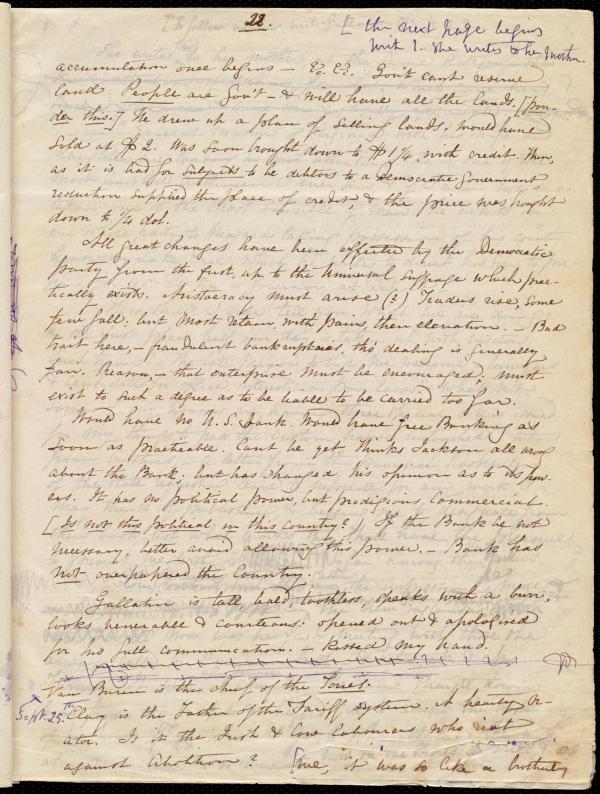 22.
[ the next page begins
with 1. She writes to her mother.
accumulation once begins – &c. &c. Gov't cant resume
land. People are Gov't – & will have all the lands. [pon-
der this.] He drew up a plan of selling lands. Would have
sold at $2. Was soon brought down to $1¼, with credit. Then,
as it is bad for subjects to be debtors to a Democratic Government
reduction supplied the place of credit, & the price was brought
down to ¼ dol.
All great changes have been effected by the Democratic
party, from the first, up to the Universal Suffrage which prac-
tically exists. Aristocracy must arise (?) Traders rise, some
few fall: but most retain, with pains, their elevation. – Bad
trait here, – fraudulent bankruptcies, tho' dealing is generally
fair. Reason, – that enterprise must be encouraged; must
exist to such a degree as to be liable to be carried too far.
Would have no U.S. Bank. Would have free Banking as
soon as practicable. Cant be yet. Thinks Jackson all wrong
about the Bank; but has changed his opinion as to its pow-
ers. It has no political power, but prodigious commercial.
[Is not this political in this country?] If the Bank be not
necessary, better avoid allowing this power. – Bank has
not overpapered the Country.
Gallatin is tall, bald, toothless, speaks with a burr,
looks venerable & courteous: opened out & apologised
for no full communication. – Kissed my hand.
Van Buren is the chief of the Tories.
Sept. 25th Clay is the Father of the Tariff system. A hearty or-
ator. Is it the Irish & low labourers who riot
against Abolition? [me, it was so like a brotherly